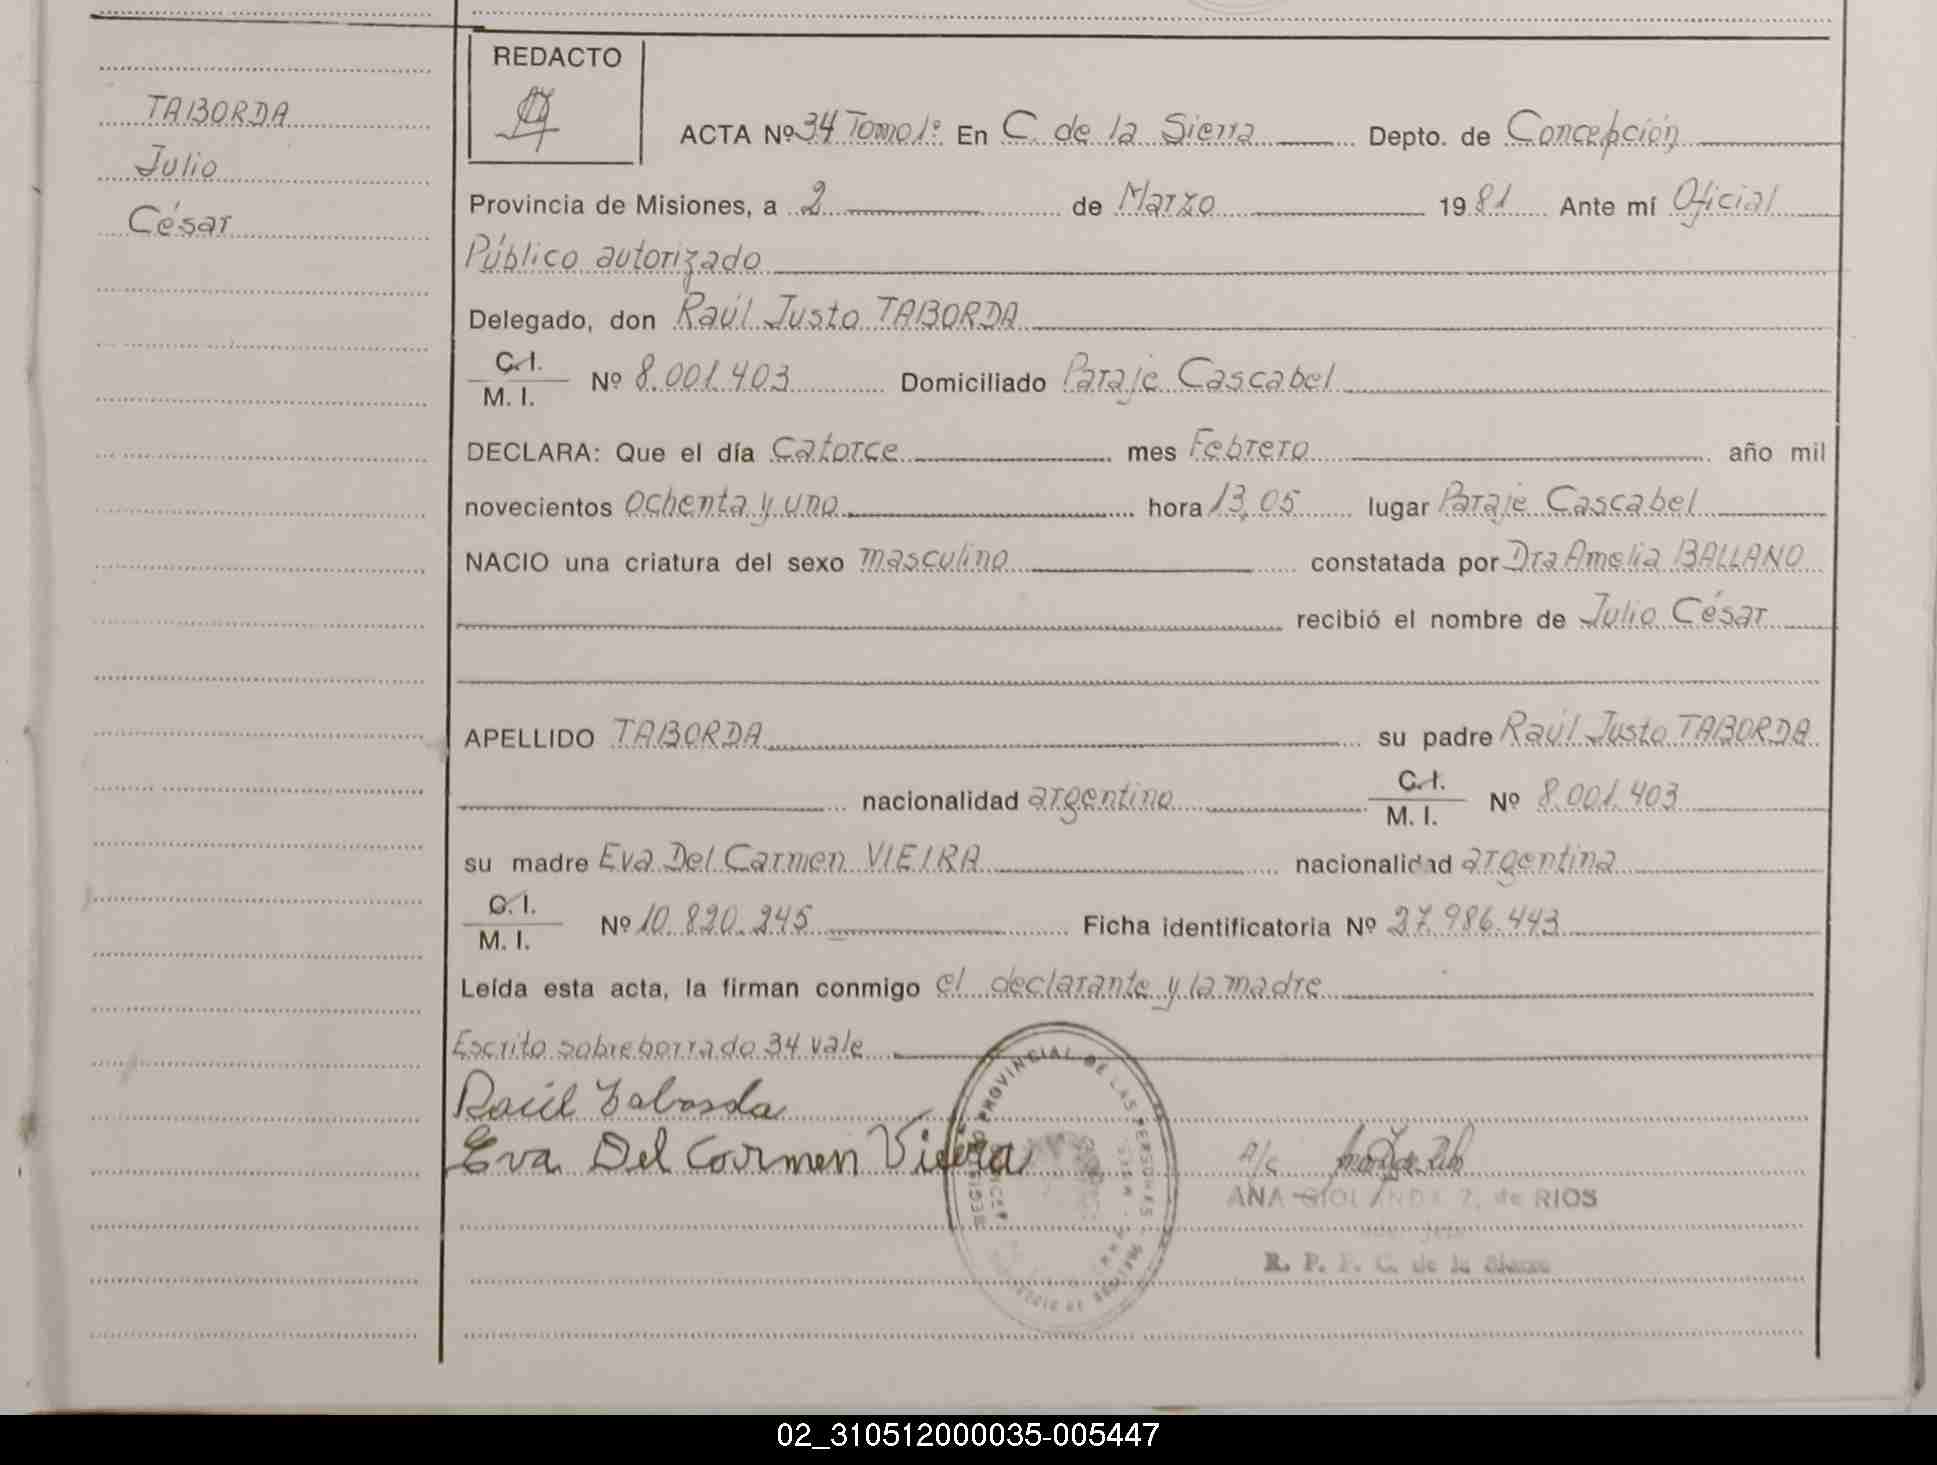 TABORDA
Julio
César
REDACTO
ACTA Nº 34 Tomo 1º En C. de la Sierra Depto. de Concepción
Provincia de Misiones, a 2 de Marzo 1981 Ante mí Oficial
Público autorizado
Delegado, don Raúl Justo TABORDA
C.I.
M. I. Nº 8.001.403 Domiciliado Paraje Cascabel
DECLARA: Que el día Catorce mes Febrero año mil
novecientos ochenta y uno hora 13,05 lugar Paraje Cascabel
NACIO una criatura del sexo masculino constatada por Dra Amelia BALLANO
recibió el nombre de Julio César
APELLIDO TABORDA su padre Raúl Justo TABORDA
nacionalidad argentino C.I. M. I. Nº 8.001.403
su madre Eva Del Carmen VIEIRA nacionalidad argentina
C.I.
M. I. Nº 10.820.245 Ficha identificatoria Nº 27.986.443
Leída esta acta, la firman conmigo el declarante y la madre
Escrito sobreborrado 34 vale
Raúl Taborda
Eva Del Carmen Vieira
REGISTRO PROVINCIAL DE LAS PERSONAS
A/c
ANA de RIOS
R. P. P. C. de la Sierra
02_310512000035-005447